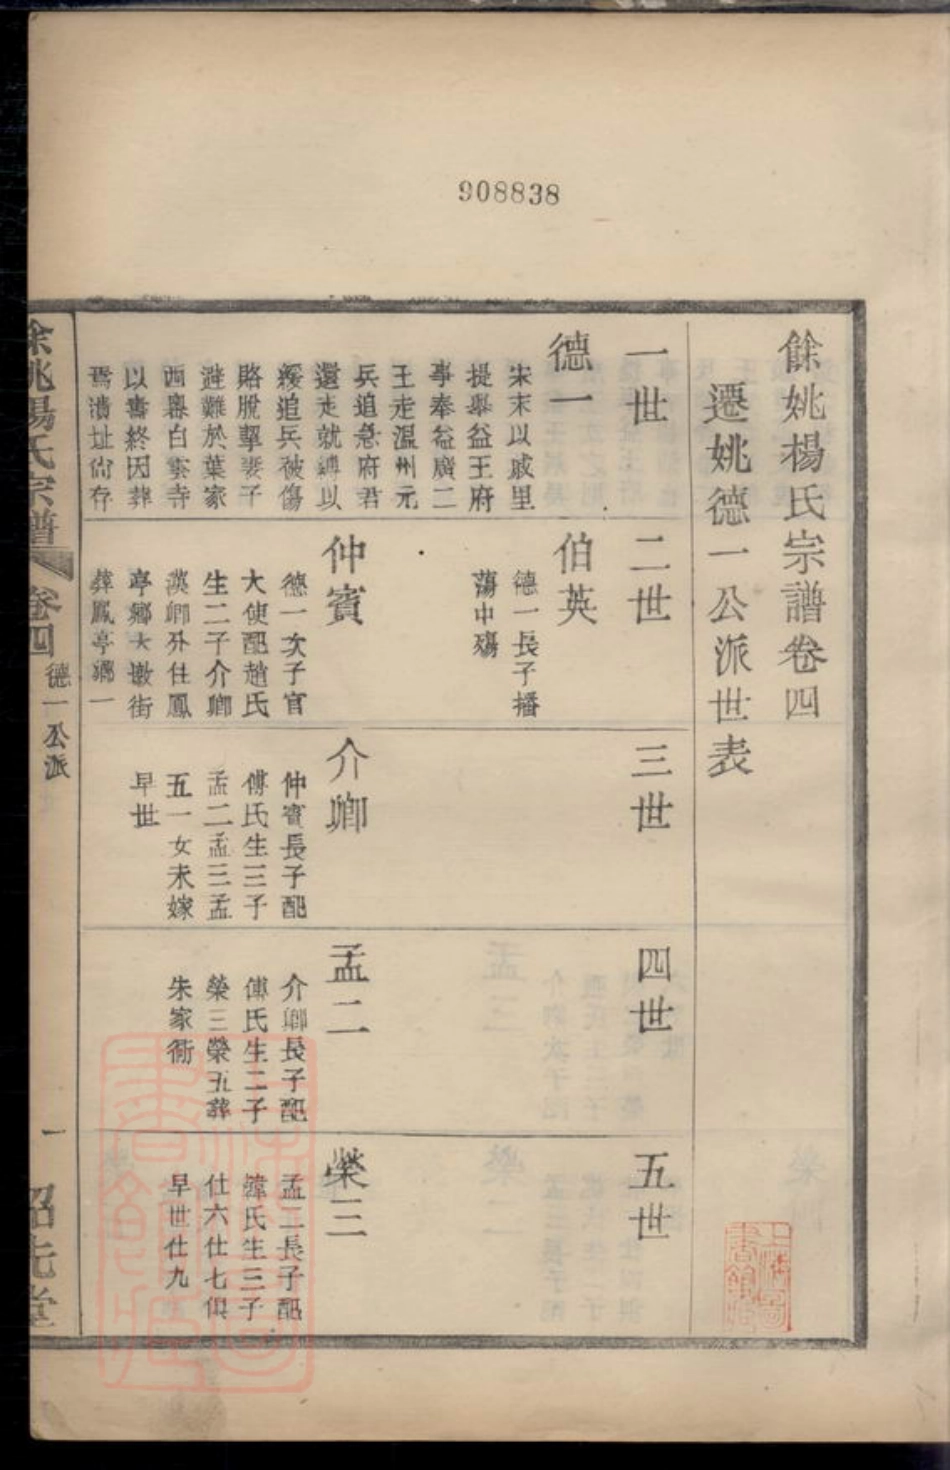 908838
餘姚楊氏宗譜卷四
遷姚德一公派世表
一世
德一
宋末以戚里
提舉益王府
事奉益廣二
王走溫州元
兵追急府君
還走就縛以
綏追兵被傷
賂脫挈妻子
避難於葉家
西㠗白雲寺
以壽終因葬
焉濆址尙存
二世
伯英
德一長子播
蕩中殤
仲賓
德一次子官
大使配趙氏
生二子介卿
漢卿外住鳳
亭鄉大墩街
葬鳳亭鄉一
三世
介卿
仲賓長子配
傅氏生三子
孟二孟三孟
五一女未嫁
早世
四世
孟二
介卿長子配
傅氏生二子
榮三榮五葬
朱家衕
五世
榮三
孟二長子配
韓氏生三子
仕六仕七俱
早世仕九
餘姚楊氏宗譜
卷四
德一公派
一
昭先堂
上海圖書館藏